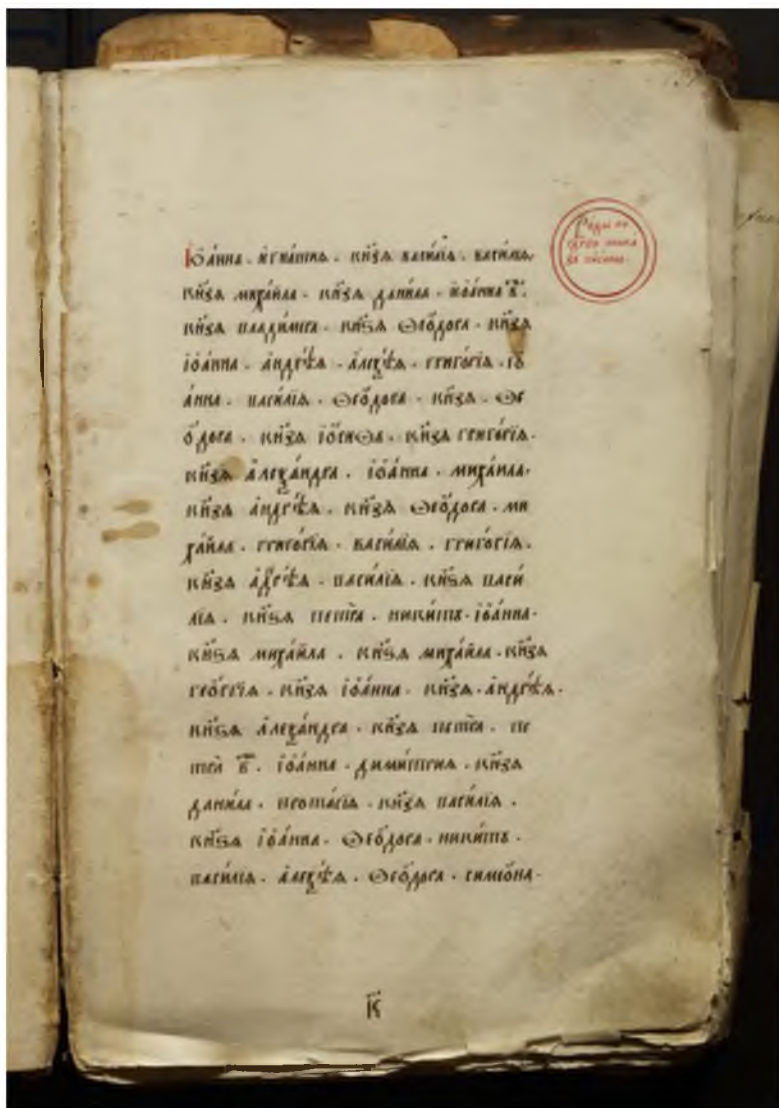 Іѡ́анна · и҆гна́тия · кн҃зя васи́лїя · васи́лїя
кн҃зя миха́ила · кн҃зя дани́ла · і҆ѡа́нна в҃ ·
кн҃зя влади́мера · кн҃зя Ѳео́дора · кн҃зя
і҆ѡа́нна · а҆ндре́ѣя · а҆леѯѣ́я · григо́рїя · іѡ
а́нна · васи́лїя · Ѳео́дора · кн҃зя · Ѳе
о́дора · кн҃зя іѡ́сиѳа · кн҃зя григо́рїя ·
кн҃зя а҆леѯа́ндра · і҆ѡа́нна · миха́ила ·
кн҃зя а҆ндре́ѣя · кн҃зя Ѳео́дора · ми
ха́ила · григо́рїя · васи́лїя · григо́рїя ·
кн҃зя а҆дре́ѣя · васи́лїя · кн҃зя васи́
лїя · кн҃зя петра̀ · ники́ты · і҆ѡа́нна ·
кн҃зя миха́ила · кн҃зя миха́ила · кн҃зя
гео́ргїя · кн҃зя і҆ѡа́нна · кн҃зя · а҆ндре́ѣя ·
кн҃зя а҆леѯа́ндра · кн҃зя петра̀ · пе
тра̀ в҃ · і҆ѡа́нна · дими́трия · кн҃зя
дани́ла · прота́сїя · кн҃зя васи́лїя ·
кн҃зя і҆ѡа́нна · Ѳео́дора · ники́ты ·
васи́лїя · а҆леѯѣ́я · Ѳео́дора · симео́на ·
к҃